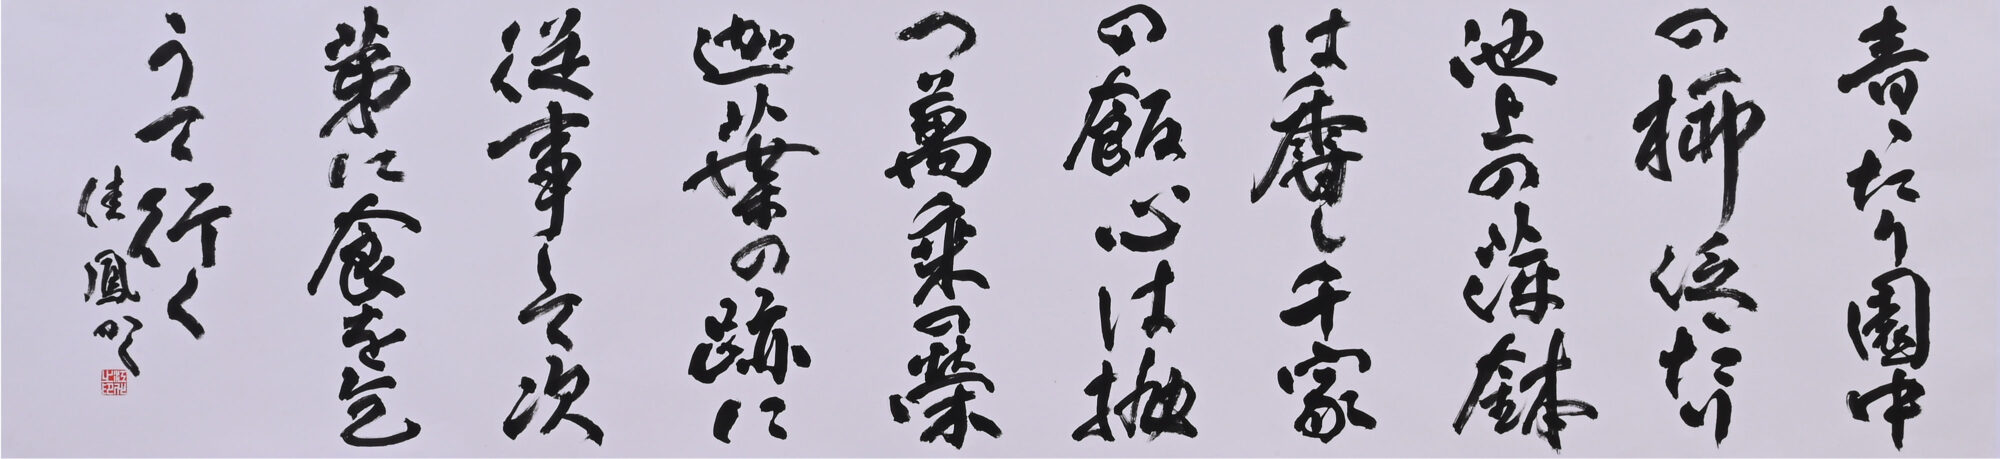 青〻たり園中
の柳泛〻たり
池上の萍鉢
は香し千家
の飯心は抛
つ萬乗の榮
迦葉の跡に
従事して次
第に食を乞
うて行く
佳鳳かく